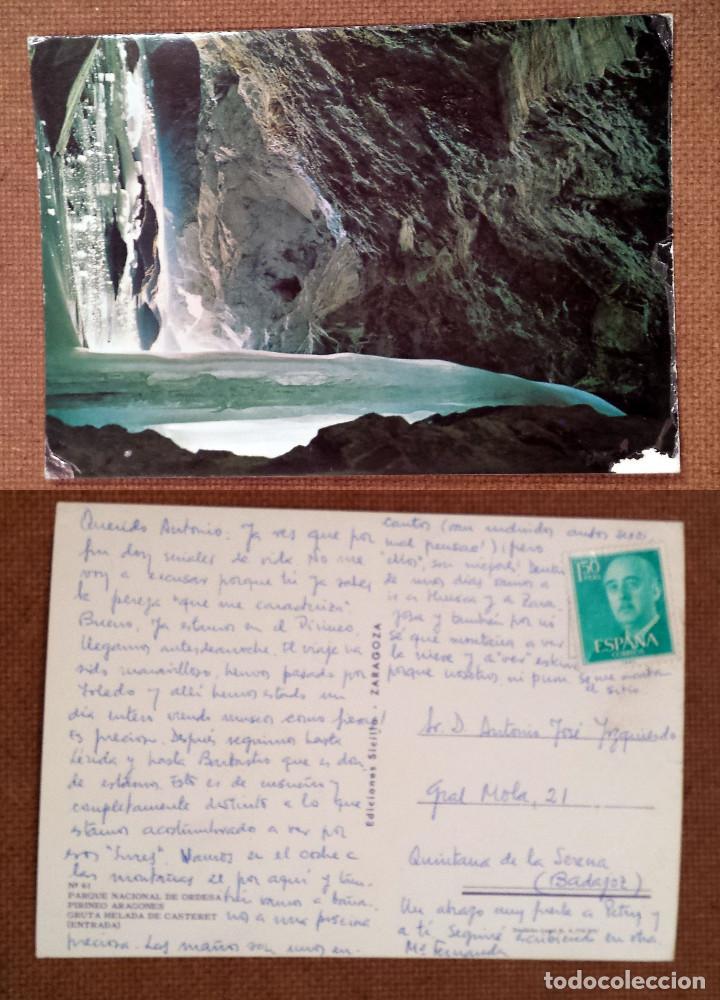 Querido Antonio: Ya ves que por
fin doy señales de vida. No me
voy a excusar porque tú ya sabes
la pereza "que me caracteriza"
Bueno, Ya estamos en el Pirineo.
llegamos antesdeanoche. El viaje ha
sido maravilloso, hemos pasado por
Toledo y allí hemos estado un
día entero viendo museos como fieras!
Es precioso. Después seguimos hasta
Lérida y hasta que es don-
de estamos. Esto es de ensueño y
completamente distinto a lo que
estamos acostumbrado a ver por
esos "Sures". Vamos en el coche a
las montañas de por aquí y tam-
bién vamos a
nos a una piscina
preciosa. Los maños son unos en-
cantos (van incluidos ambos sexos
mal pensao!) ¡pero
"ellos", son mejores! Dentro
de unos días vamos a
ir a Huesca y a Zara
goza y también por ni
sé que montañas a ver
la nieve y a "ver" esquiar
porque nosotros ni pum. Se me acaba
el sitio.
1'50
PTAS
ESPAÑA
CORREOS
Sr. D. Antonio José Yzquierdo
Gral Mola, 21
Quintana de la Serena
(Badajoz)
Un abrazo muy fuerte a Petry y
a tí. Seguiré escribiendo en otra.
Mª Fernanda
Ediciones Sicilia - ZARAGOZA
Nº 61
PARQUE NACIONAL DE ORDESA
PIRINEO ARAGONES
GRUTA HELADA DE CASTERET
(ENTRADA)
todocoleccion